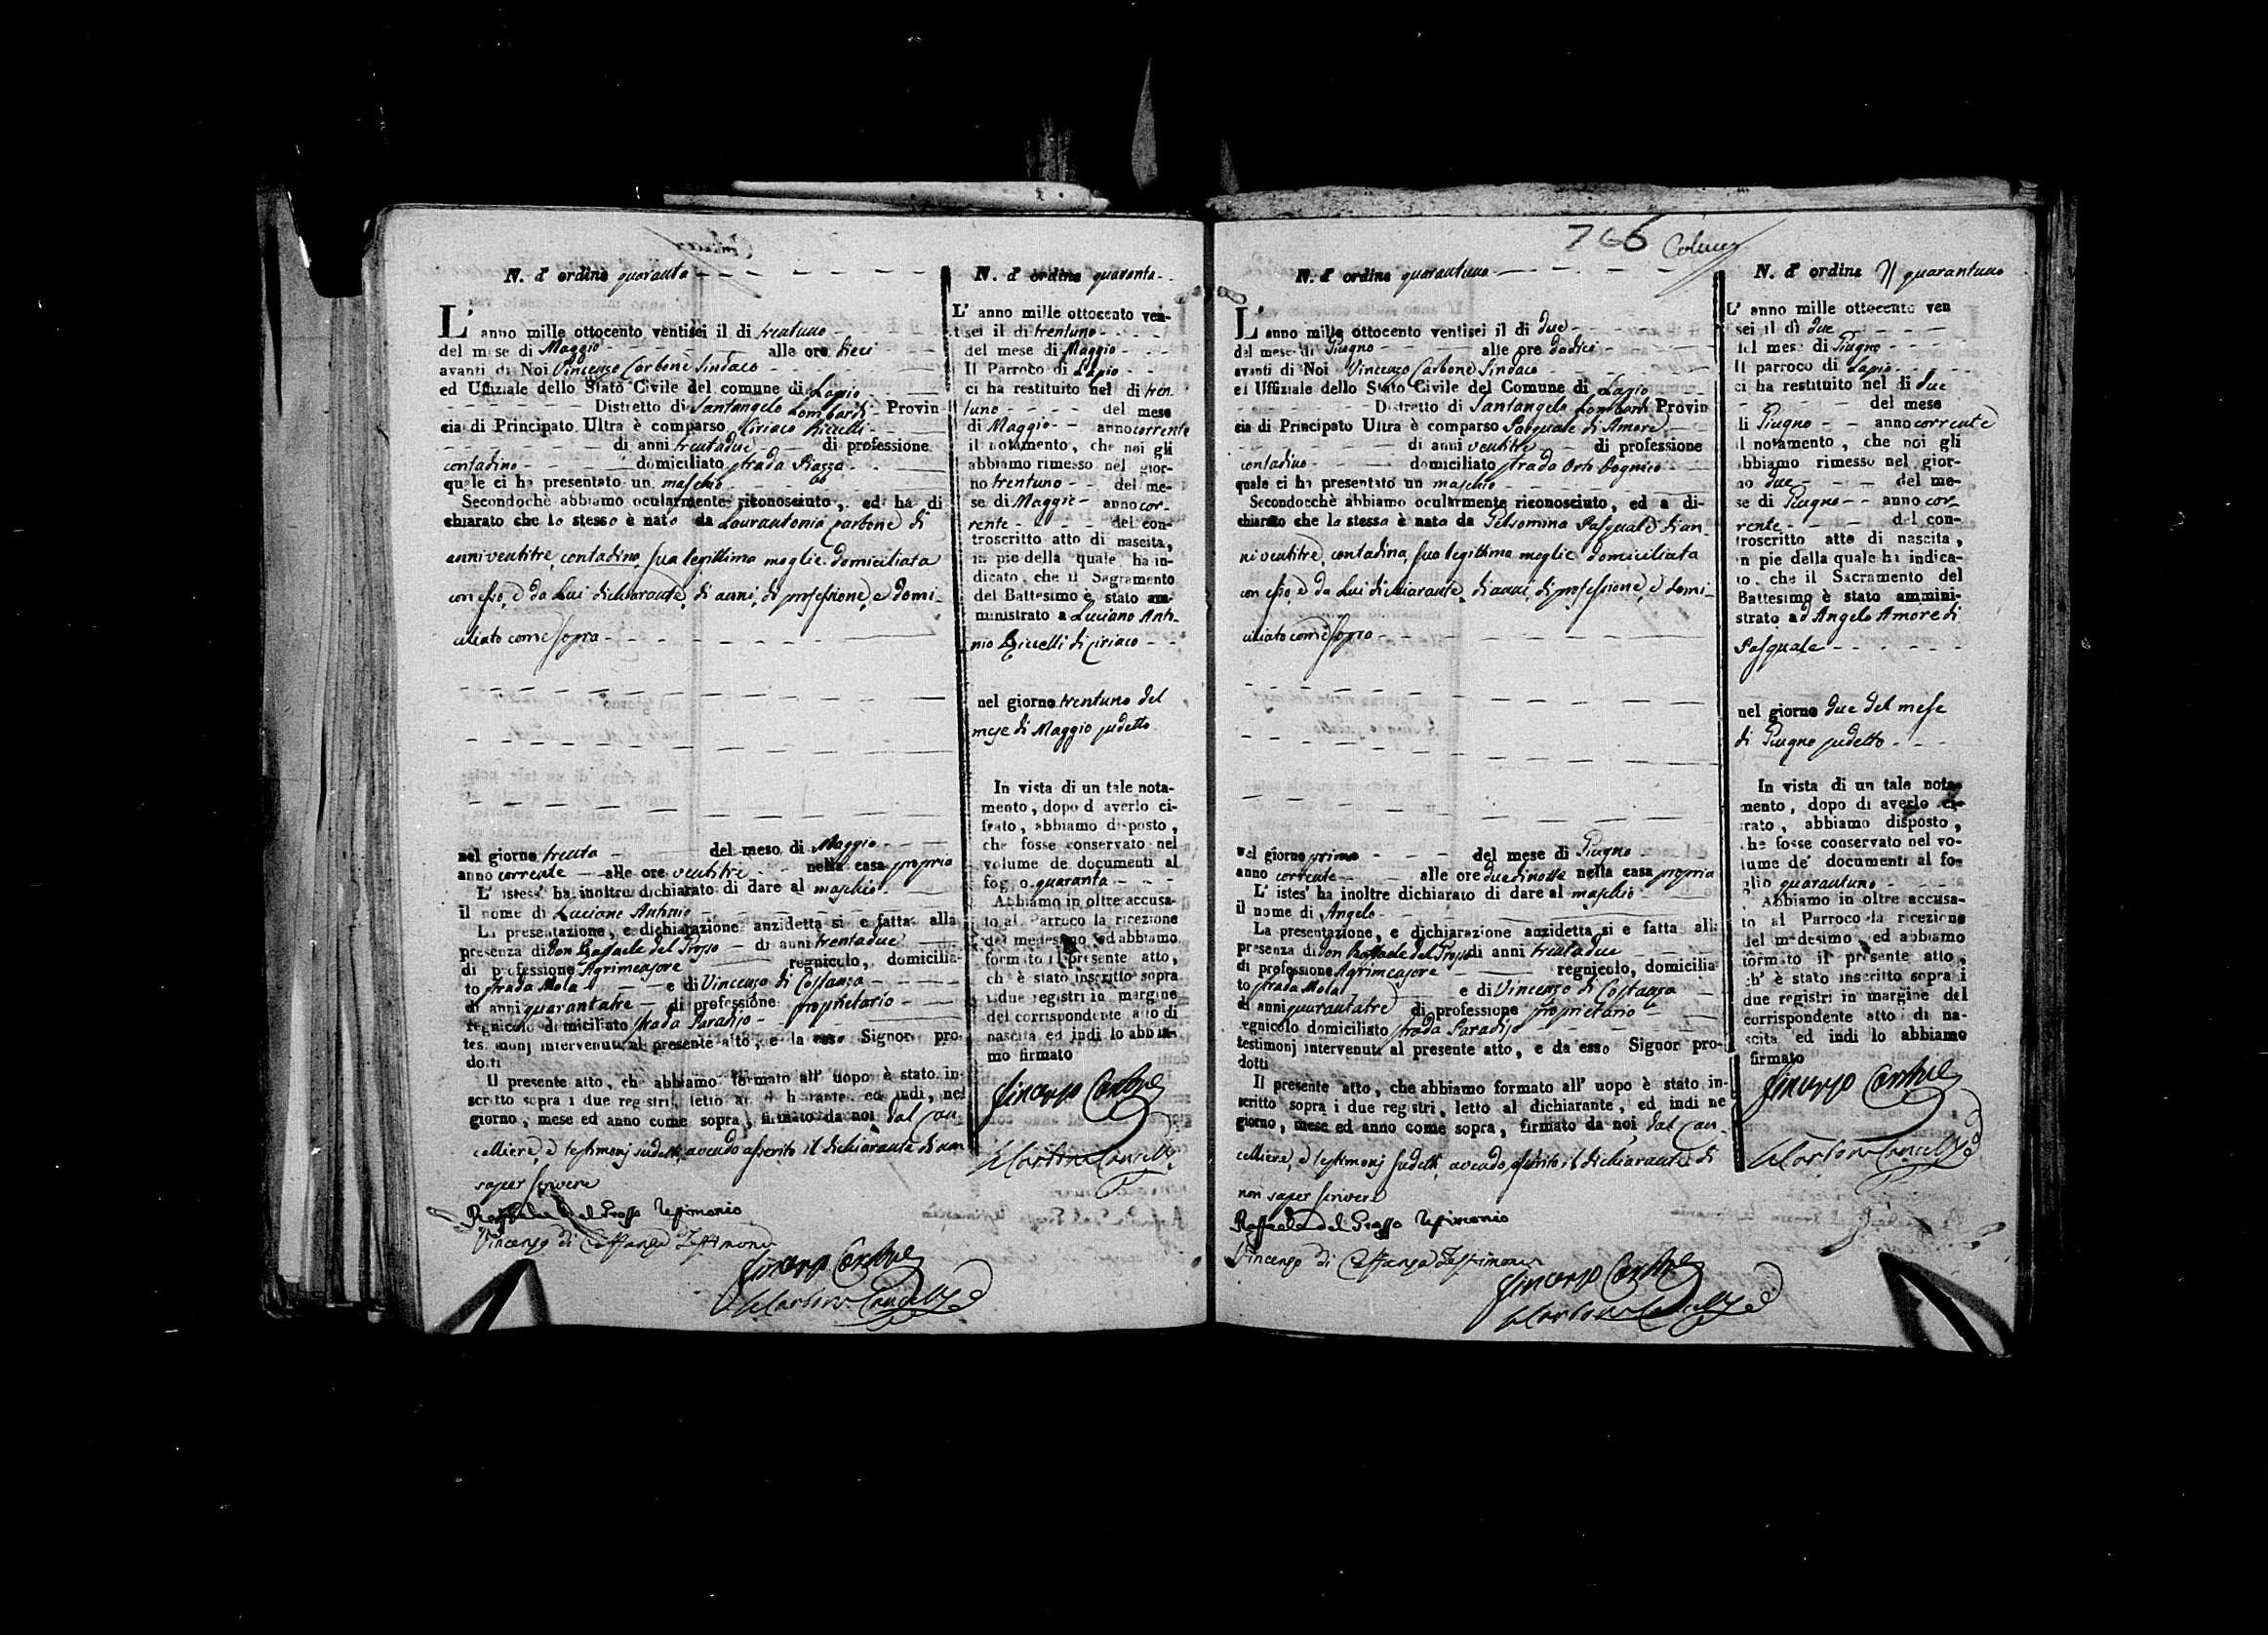 N. d' ordine quaranta
L' anno mille ottocento ventisei il di trentuno
del mese di Maggio alle ore dieci
avanti di Noi Vincenzo Carbone Sindaco
ed Uffiziale dello Stato Civile del comune di Lapio
Distretto di Santangelo Lombardi Provin
cia di Principato Ultra è comparso Ciriaco Riccelli
di anni trentadue di professione
contadino domiciliato strada Piazza
quale ci ha presentato un maschio
Secondochè abbiamo ocularmente riconosciuto, ed ha di
chiarato che lo stesso è nato da Laurantonia Carbone di
anni ventitre, contadina, sua legittima moglie domiciliata
con esso, e da Lui dichiarante, di anni, di professione, e domi-
ciliato come sopra
nel giorno trenta del meso di Maggio
anno corrente alle ore ventitre nella casa propria
L' istess' ha inoltre dichiarato di dare al maschio
il nome di Luciano Antonio
La presentazione, e dichiarazione anzidetta si e fatta alla
presenza di Don Raffaele del Grosso di anni trentadue
di professione Agrimensore regnicolo, domicilia-
to strada Mola e di Vincenzo di Costanza
di anni quarantatre di professione proprietario
regnicolo domiciliato strada Paradiso
testimonj intervenuti al presente atto, e da esso Signor pro-
dotti
Il presente atto, che abbiamo formato all' uopo è stato in-
scritto sopra i due registri, letto al dichiarante, ed indi, nel
giorno, mese ed anno come sopra, firmato da noi dal Can-
celliere, e testimonj sudetti, avendo asserito il dichiarante di non
saper scrivere
Raffaele del Grosso Testimonio
Vincenzo di Costanza Testimonio
Vincenzo Carbone
N. d' ordine quaranta
L' anno mille ottocento ven-
tisei il di trentuno
del mese di Maggio
Il Parroco di Lapio
ci ha restituito nel di tren
tuno del mese
di Maggio anno corrente
il notamento, che noi gli
abbiamo rimesso nel gior-
no trentuno del me-
se di Maggio anno cor-
rente del con-
troscritto atto di nascita,
in pie della quale ha in-
dicato, che il Sagramento
del Battesimo è stato am-
ministrato a Luciano Anto-
nio Riccelli di Ciriaco
nel giorno trentuno del
mese di Maggio sudetto
In vista di un tale nota-
mento, dopo d averlo ci-
frato, abbiamo disposto,
che fosse conservato nel
volume de documenti al
fog o quaranta
Abbiamo in oltre accusa-
to al Parroco la ricezione
del medesimo ed abbiamo
formato il presente atto,
ch' è stato inscritto sopra
i due registri in margine
del corrispondente atto di
nascita ed indi lo abbia-
mo firmato
Vincenzo Carbone
766
N. d' ordine quarantuno
L' anno mille ottocento ventisei il di due
del mese di Giugno alle ore dodici
avanti di Noi Vincenzo Carbone Sindaco
ed Uffiziale dello Stato Civile del Comune di Lapio
Distretto di Santangelo Lombardi Provin
cia di Principato Ultra è comparso Pasquale di Amore
di anni ventitre di professione
contadino domiciliato strada Orto
quale ci ha presentato un maschio
Secondocchè abbiamo ocularmente riconosciuto, ed a di-
chiarato che la stessa è nata da Gelsomina Pasquale di an
ni ventitre, contadina, sua legittima moglie domiciliata
con esso, e da Lui dichiarante, di anni, di professione, e domi-
ciliato come sopra
nel giorno primo del mese di Giugno
anno corrente alle ore due di notte nella casa propria
L' istes' ha inoltre dichiarato di dare al maschio
il nome di Angelo
La presentazione, e dichiarazione anzidetta si e fatta alla
presenza di Don Raffaele del Grosso di anni trentadue
di professione Agrimensore regnicolo, domicilia
to strada Mola e di Vincenzo di Costanza
di anni quarantatre di professione proprietario
regnicolo domiciliato strada Paradiso
testimonj intervenuti al presente atto, e da esso Signor pro-
dotti
Il presente atto, che abbiamo formato all' uopo è stato in-
scritto sopra i due registri, letto al dichiarante, ed indi ne
giorno, mese ed anno come sopra, firmato da noi dal Can-
celliere, e testimonj sudetti, avendo asserito il dichiarante di
non saper scrivere
Raffaele del Grosso Testimonio
Vincenzo di Costanza Testimonio
Vincenzo Carbone
N. d' ordine quarantuno
L' anno mille ottocento ven
sei il dì due
del mese di Giugno
Il parroco di Lapio
ci ha restituito nel di due
del mese
di Giugno anno corrente
il notamento, che noi gli
abbiamo rimesso nel gior-
no due del me-
se di Giugno anno cor-
rente del con-
troscritto atto di nascita,
in pie della quale ha indica-
to, che il Sacramento del
Battesimo è stato ammini-
strato ad Angelo Amore di
Pasquale
nel giorno due del mese
di Giugno sudetto
In vista di un tale nota-
mento, dopo di averlo ci-
frato, abbiamo disposto,
che fosse conservato nel vo-
lume de' documenti al fo-
glio quarantuno
Abbiamo in oltre accusa-
to al Parroco la ricezione
del medesimo, ed abbiamo
formato il presente atto,
ch' è stato inscritto sopra i
due registri in margine del
corrispondente atto di na-
scita ed indi lo abbiamo
firmato
Vincenzo Carbone